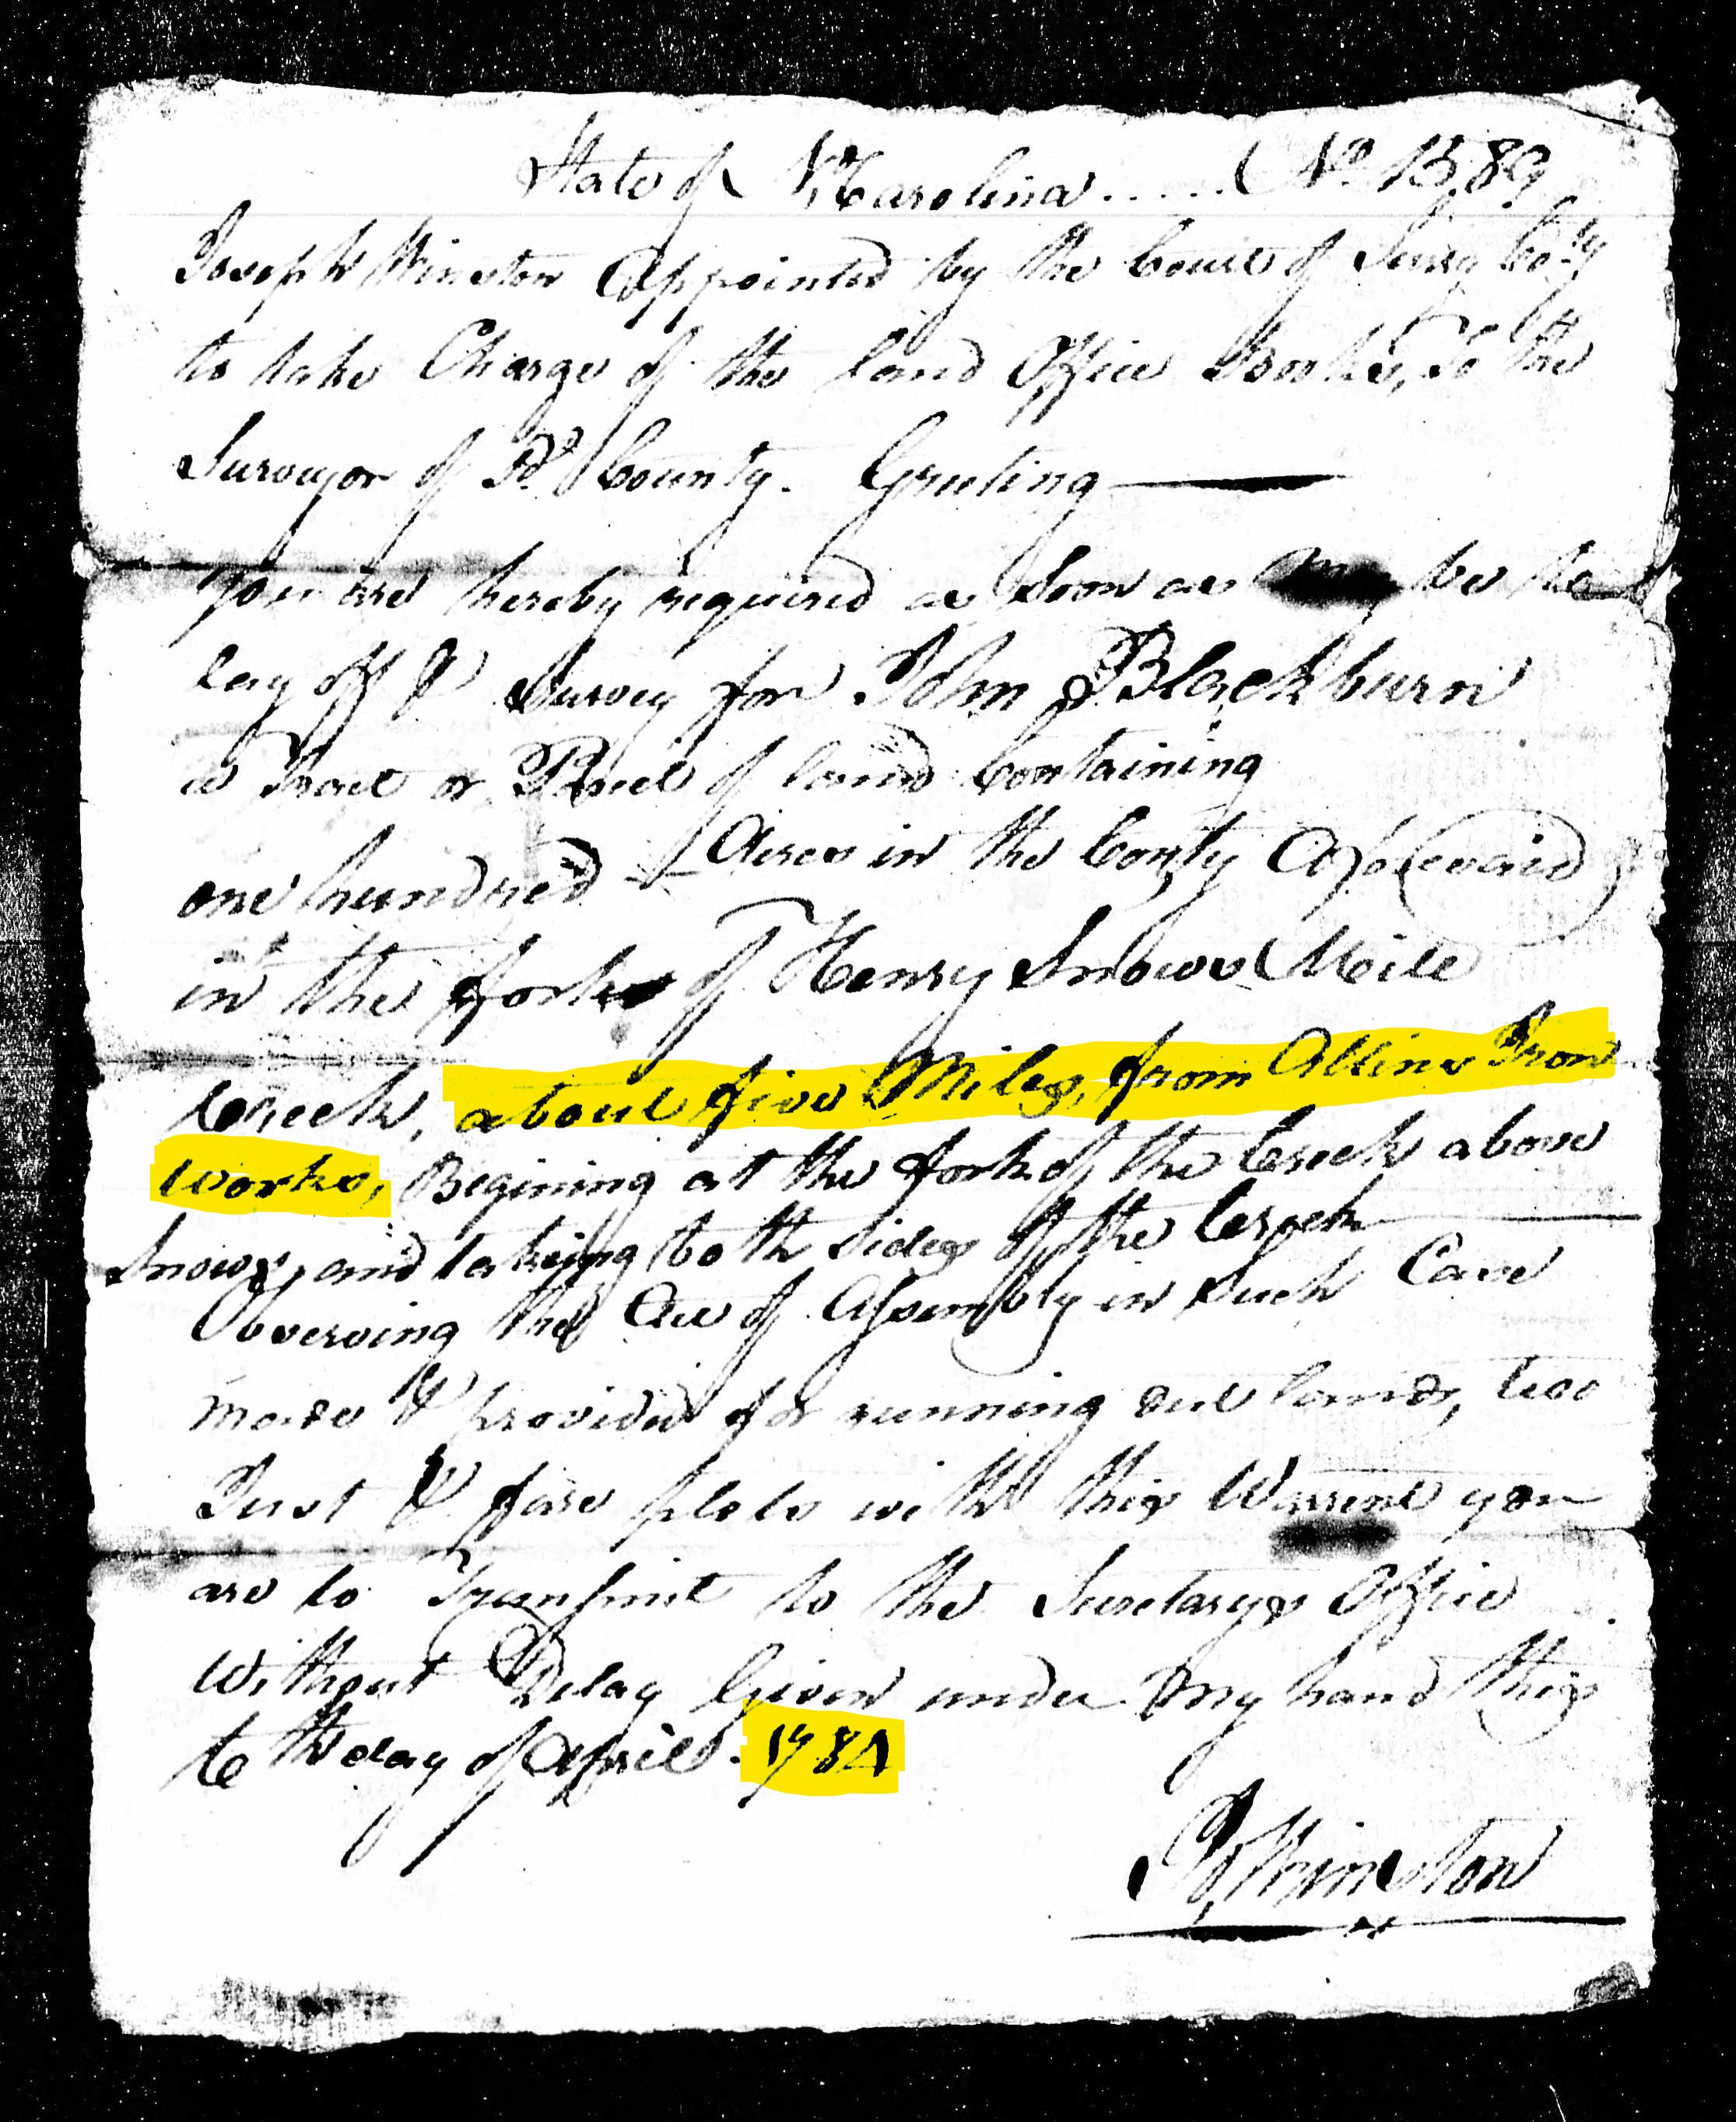 State of N Carolina ..... No. 1589
Joseph Winston Appointed by the Court of Surry Co.ty
to take Charge of the land Office Books, To the
Surveyor of Sd. County. Greeting —
You are hereby required as Soon as may be to
lay off & Survey for John Blackburn
a Tract or Parcel of land Containing
one hundred Acres in the Conty Aforesaid
in the fork of Henry Snows Mill
Creek, about five Miles, from Allins Iron
Works, Begining at the fork of the Creek above
Snows, and taking both Sides of the Creek
Observing the Act of Assembly in Such Case
made & provided for running out lands, two
Just & fare plots with this Warrent you
are to Transmit to the Secretarys Office
Without Delay Given under my hand this
day of April 1784
Jo. Winston